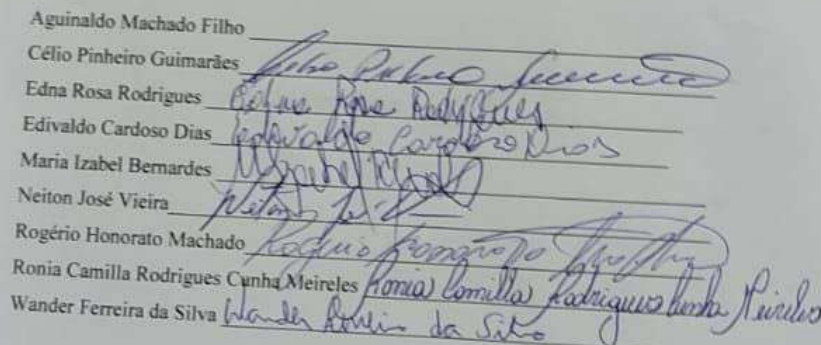 Aguinaldo Machado Filho
Célio Pinheiro Guimarães
Edna Rosa Rodrigues Edna Rosa Rodrigues
Edivaldo Cardoso Dias Edivaldo Cardoso Dias
Maria Izabel Bernardes
Neiton José Vieira
Rogério Honorato Machado Rogério Honorato
Ronia Camilla Rodrigues Cunha Meireles Ronia Camilla Rodrigues Cunha Meireles
Wander Ferreira da Silva Wander Ferreira da Silva